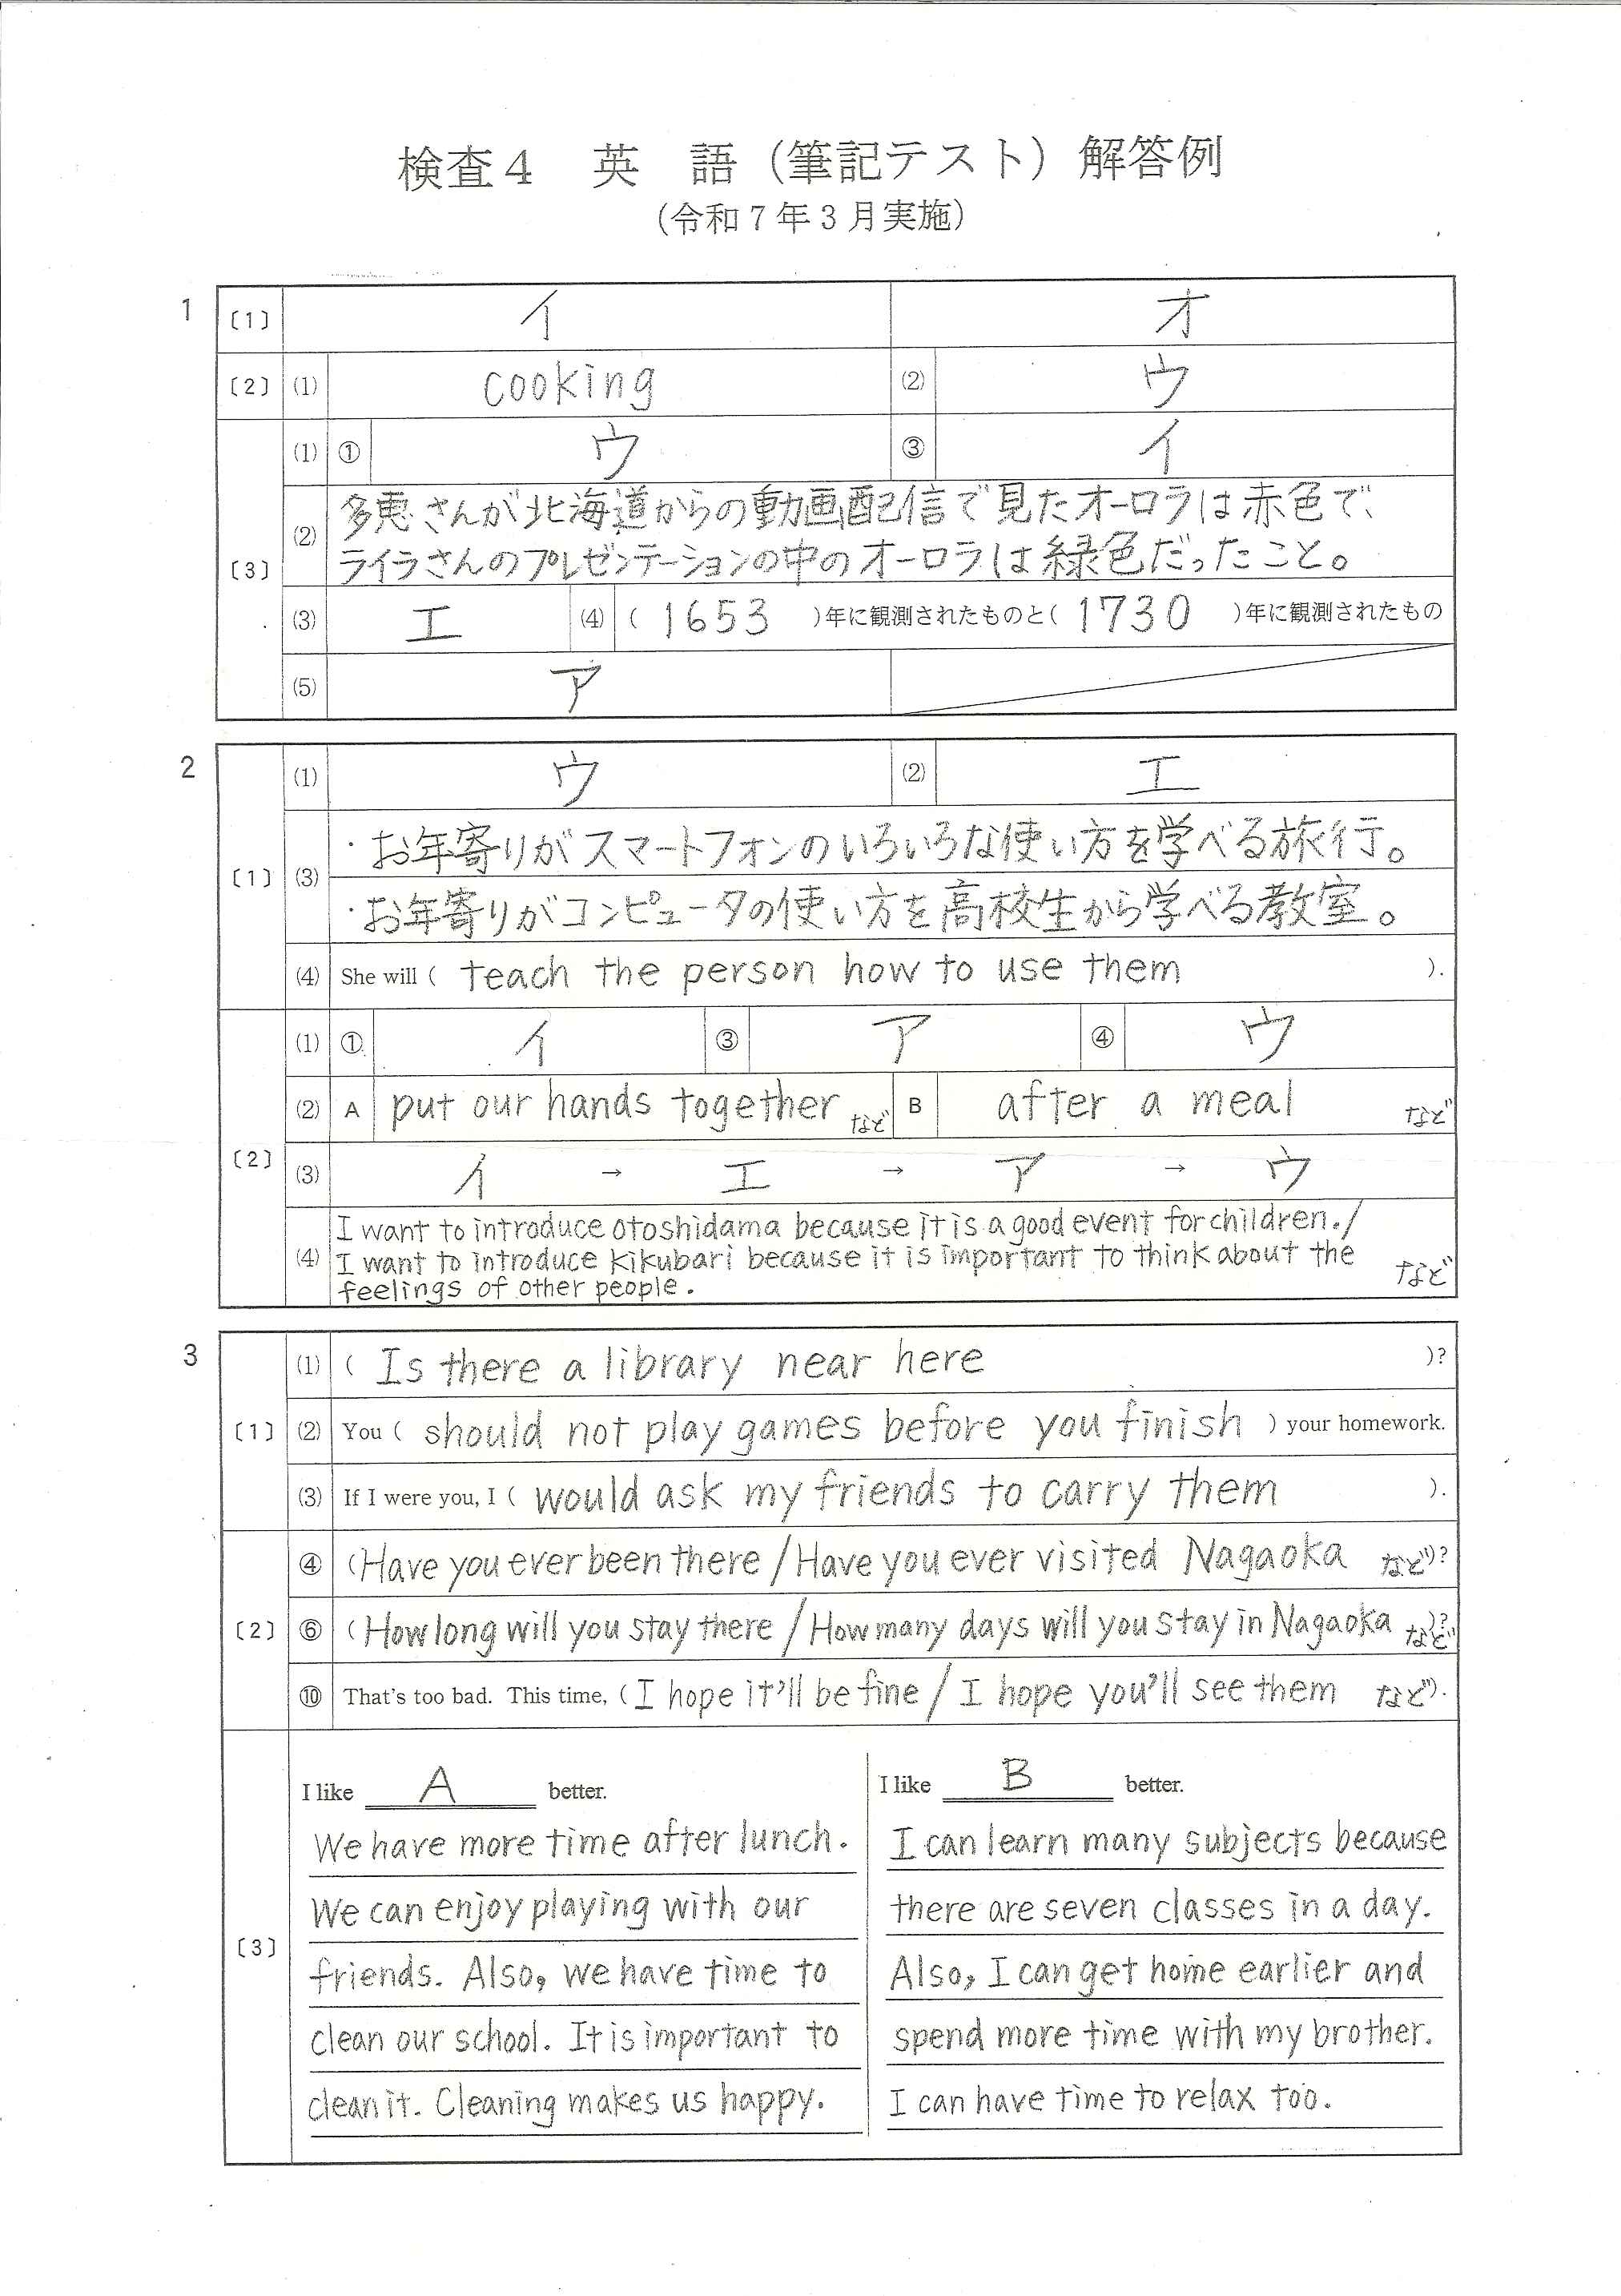 検査4 英 語（筆記テスト）解答例
（令和7年3月実施）
1
〔1〕 イ オ
〔2〕 (1) cooking (2) ウ
〔3〕 (1) ① ウ ③ イ
(2) 多恵さんが北海道からの動画配信で見たオーロラは赤色で、
ライラさんのプレゼンテーションの中のオーロラは緑色だったこと。
(3) エ (4) ( 1653 )年に観測されたものと( 1730 )年に観測されたもの
(5) ア
2
〔1〕 (1) ウ (2) エ
(3) ・お年寄りがスマートフォンのいろいろな使い方を学べる旅行。
・お年寄りがコンピュータの使い方を高校生から学べる教室。
(4) She will ( teach the person how to use them ).
〔2〕 (1) ① イ ③ ア ④ ウ
(2) A put our hands together など B after a meal など
(3) イ → エ → ア → ウ
(4) I want to introduce otoshidama because it is a good event for children./
I want to introduce kikubari because it is important to think about the
feelings of other people. など
3
〔1〕 (1) ( Is there a library near here )?
(2) You ( should not play games before you finish ) your homework.
(3) If I were you, I ( would ask my friends to carry them ).
〔2〕 ④ (Have you ever been there / Have you ever visited Nagaoka など)?
⑥ (How long will you stay there / How many days will you stay in Nagaoka など)?
⑩ That's too bad. This time, (I hope it'll be fine / I hope you'll see them など).
〔3〕
I like A better.
We have more time after lunch.
We can enjoy playing with our
friends. Also, we have time to
clean our school. It is important to
clean it. Cleaning makes us happy.
I like B better.
I can learn many subjects because
there are seven classes in a day.
Also, I can get home earlier and
spend more time with my brother.
I can have time to relax too.